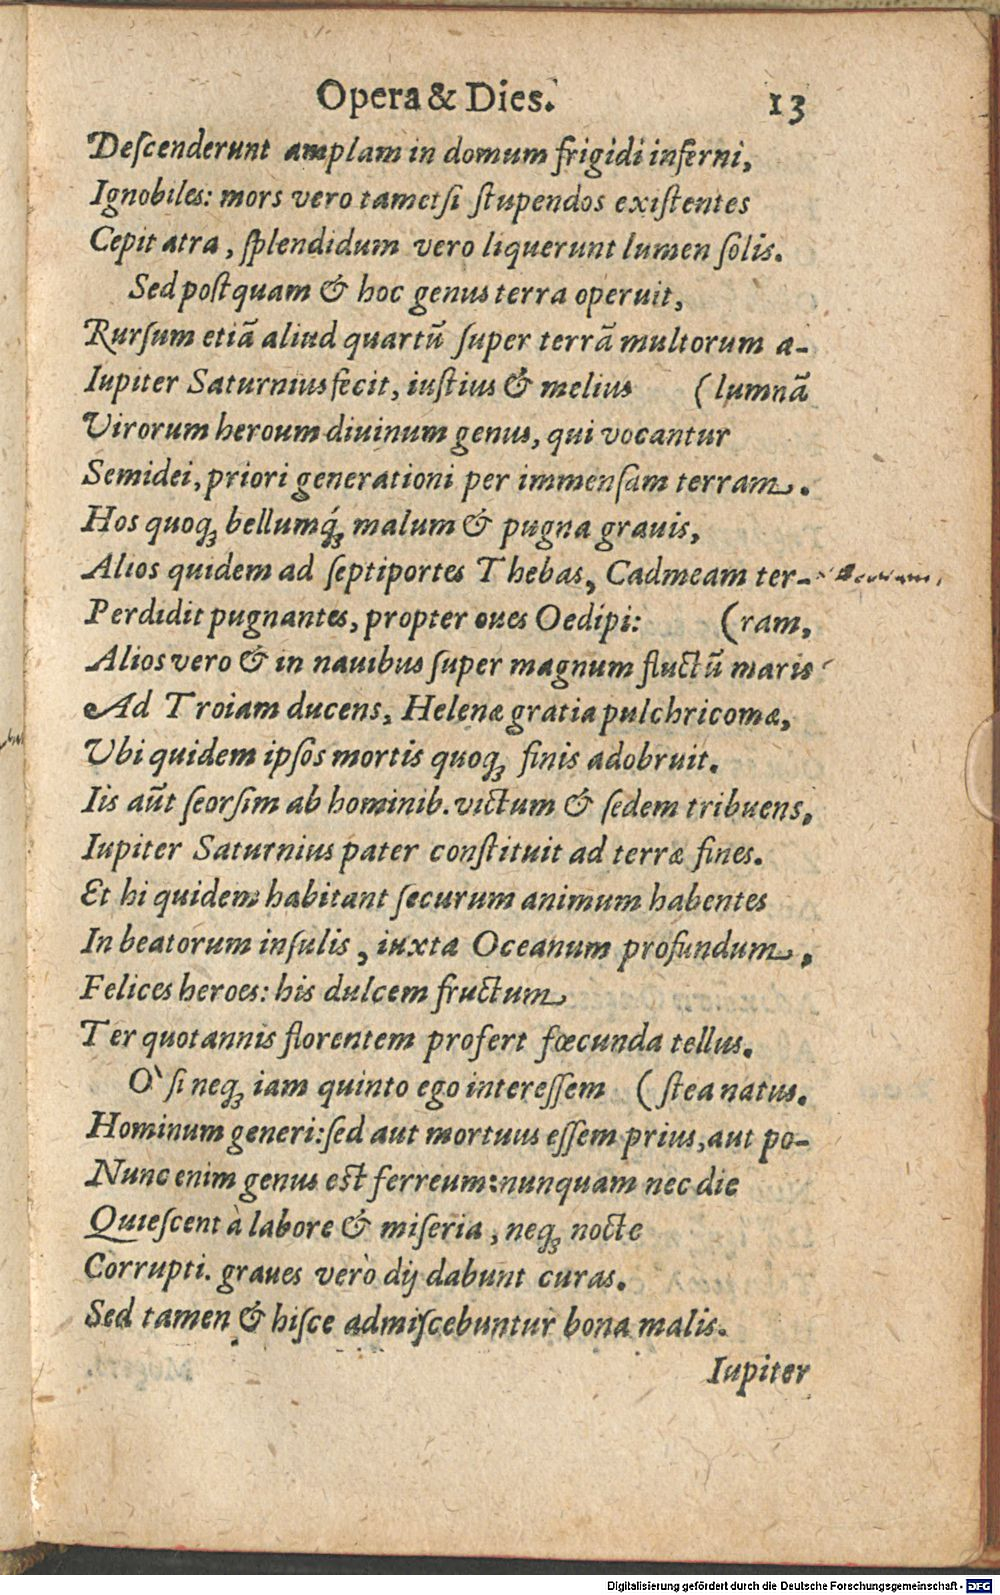 Opera & Dies. 13
Deſcenderunt amplam in domum frigidi inferni,
Ignobiles: mors vero tametſi ſtupendos exiſtentes
Cepit atra, ſplendidum vero liquerunt lumen ſolis.
Sed poſtquam & hoc genus terra operuit,
Rurſum etiā aliud quartū ſuper terrā multorum a-
Iupiter Saturnius fecit, iuſtius & melius (lumnā
Virorum heroum diuinum genus, qui vocantur
Semidei, priori generationi per immenſam terram.
Hos quoq; bellumq́; malum & pugna grauis,
Alios quidem ad ſeptiportes Thebas, Cadmeam ter-
Perdidit pugnantes, propter oues Oedipi: (ram,
Alios vero & in nauibus ſuper magnum fluctū maris
Ad Troiam ducens, Helenæ gratia pulchricomæ,
Vbi quidem ipſos mortis quoq; finis adobruit.
Iis aūt ſeorſim ab hominib. victum & ſedem tribuens,
Iupiter Saturnius pater conſtituit ad terræ fines.
Et hi quidem habitant ſecurum animum habentes
In beatorum inſulis, iuxta Oceanum profundum,
Felices heroes: his dulcem fructum
Ter quotannis florentem profert fœcunda tellus.
O` ſi neq; iam quinto ego intereſſem (ſtea natus.
Hominum generi: ſed aut mortuus eſſem prius, aut po-
Nunc enim genus eſt ferreum: nunquam nec die
Quieſcent à labore & miſeria, neq; nocte
Corrupti. graues verò dij dabunt curas.
Sed tamen & hiſce admiſcebuntur bona malis.
Iupiter
Digitalisierung gefördert durch die Deutsche Forschungsgemeinschaft - DFG